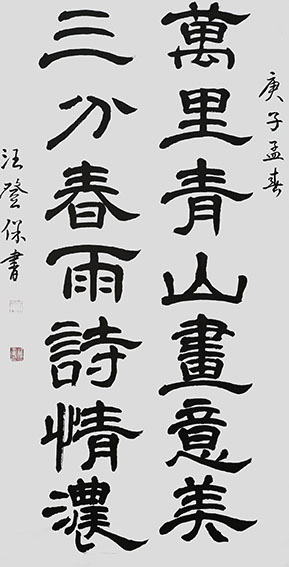 庚子孟春
萬里青山畫意美
三分春雨詩情濃
汪登保書